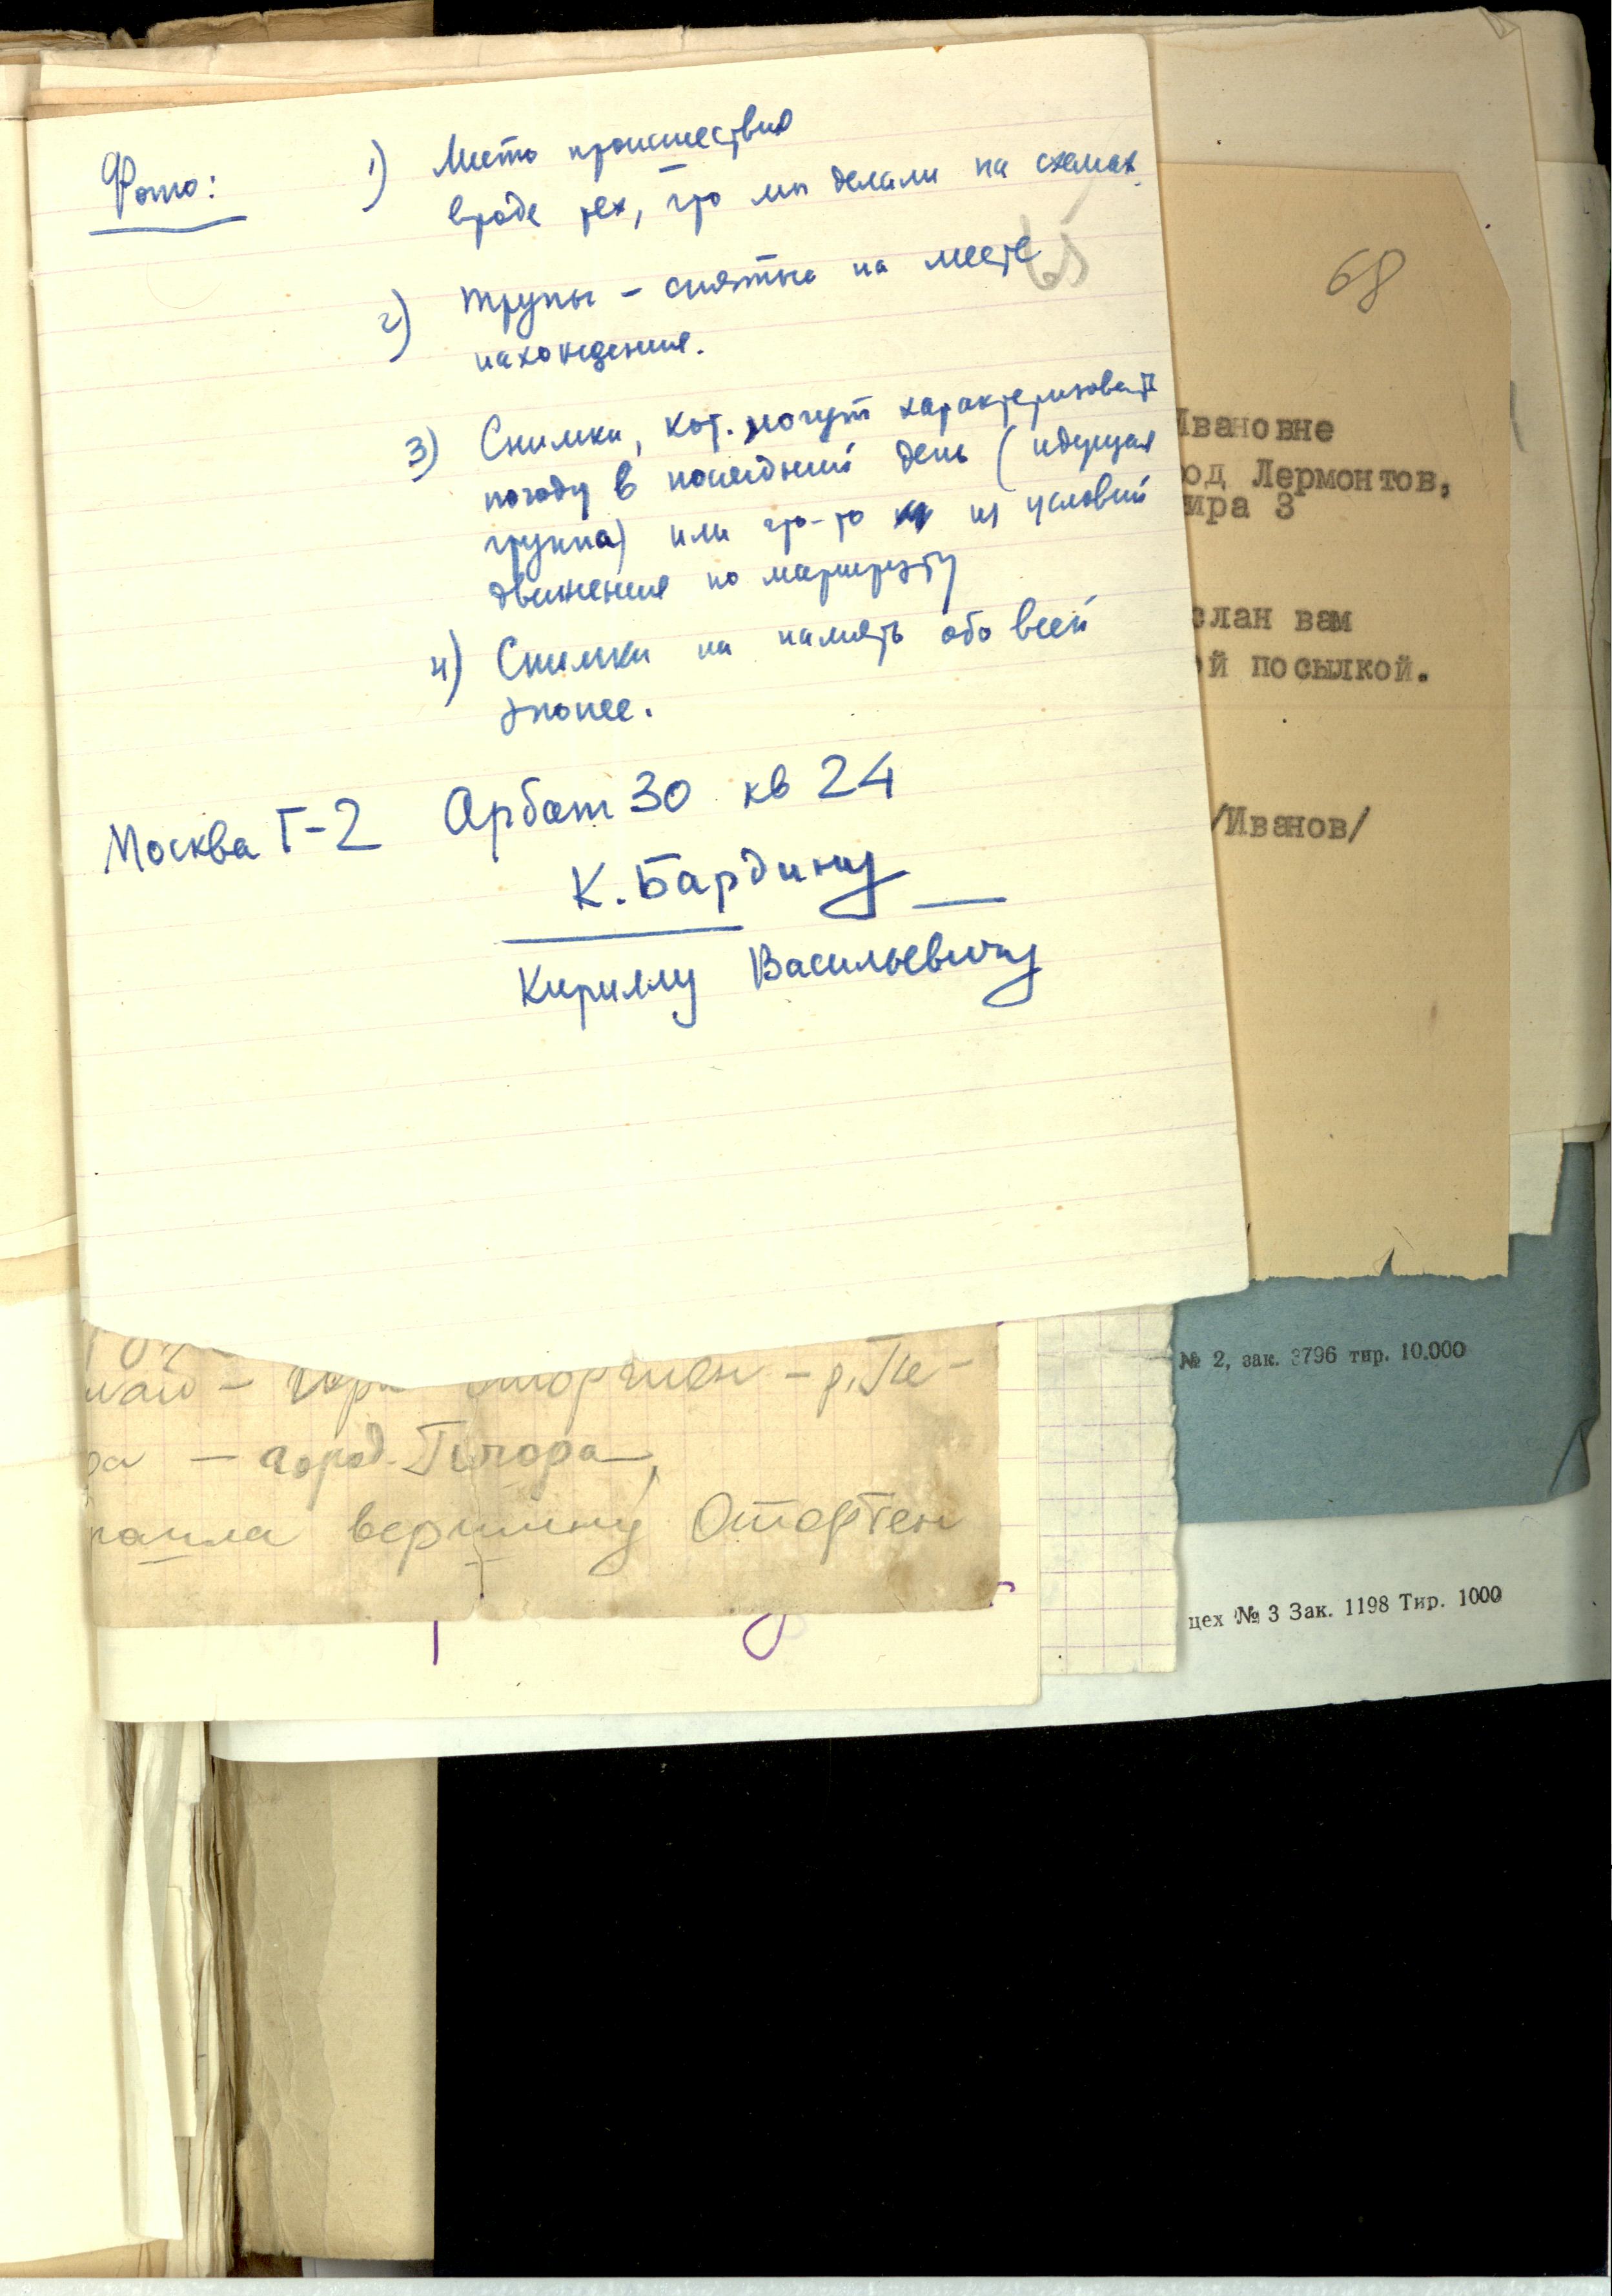 Фото:
1) Место происшествия
вроде тех, что мы делали на схемах.
65
2) Трупы – снятые на месте
нахождения.
3) Снимки, кот. могут характеризовать
погоду в последний день (идущая
группа) или что-то из условий
движения по маршруту
4) Снимки на память обо всей
эпопее.
Москва Г-2 Арбат 30 кв 24
К. Бардину
Кириллу Васильевичу
68
Ивановне
од Лермонтов,
ира 3
слан вам
ой посылкой.
/Иванов/
№ 2, зак. 3796 тир. 10.000
– город Печора,
вершину Отортен
цех № 3 Зак. 1198 Тир. 1000